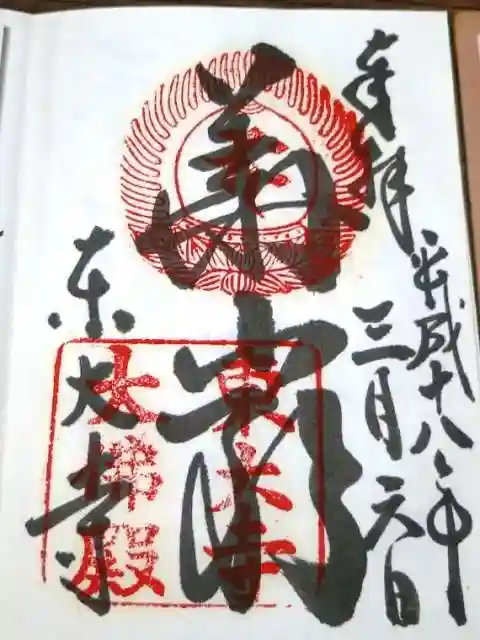 奉拝
平成十八年
三月六日
華嚴
東大寺
東大寺
大佛殿